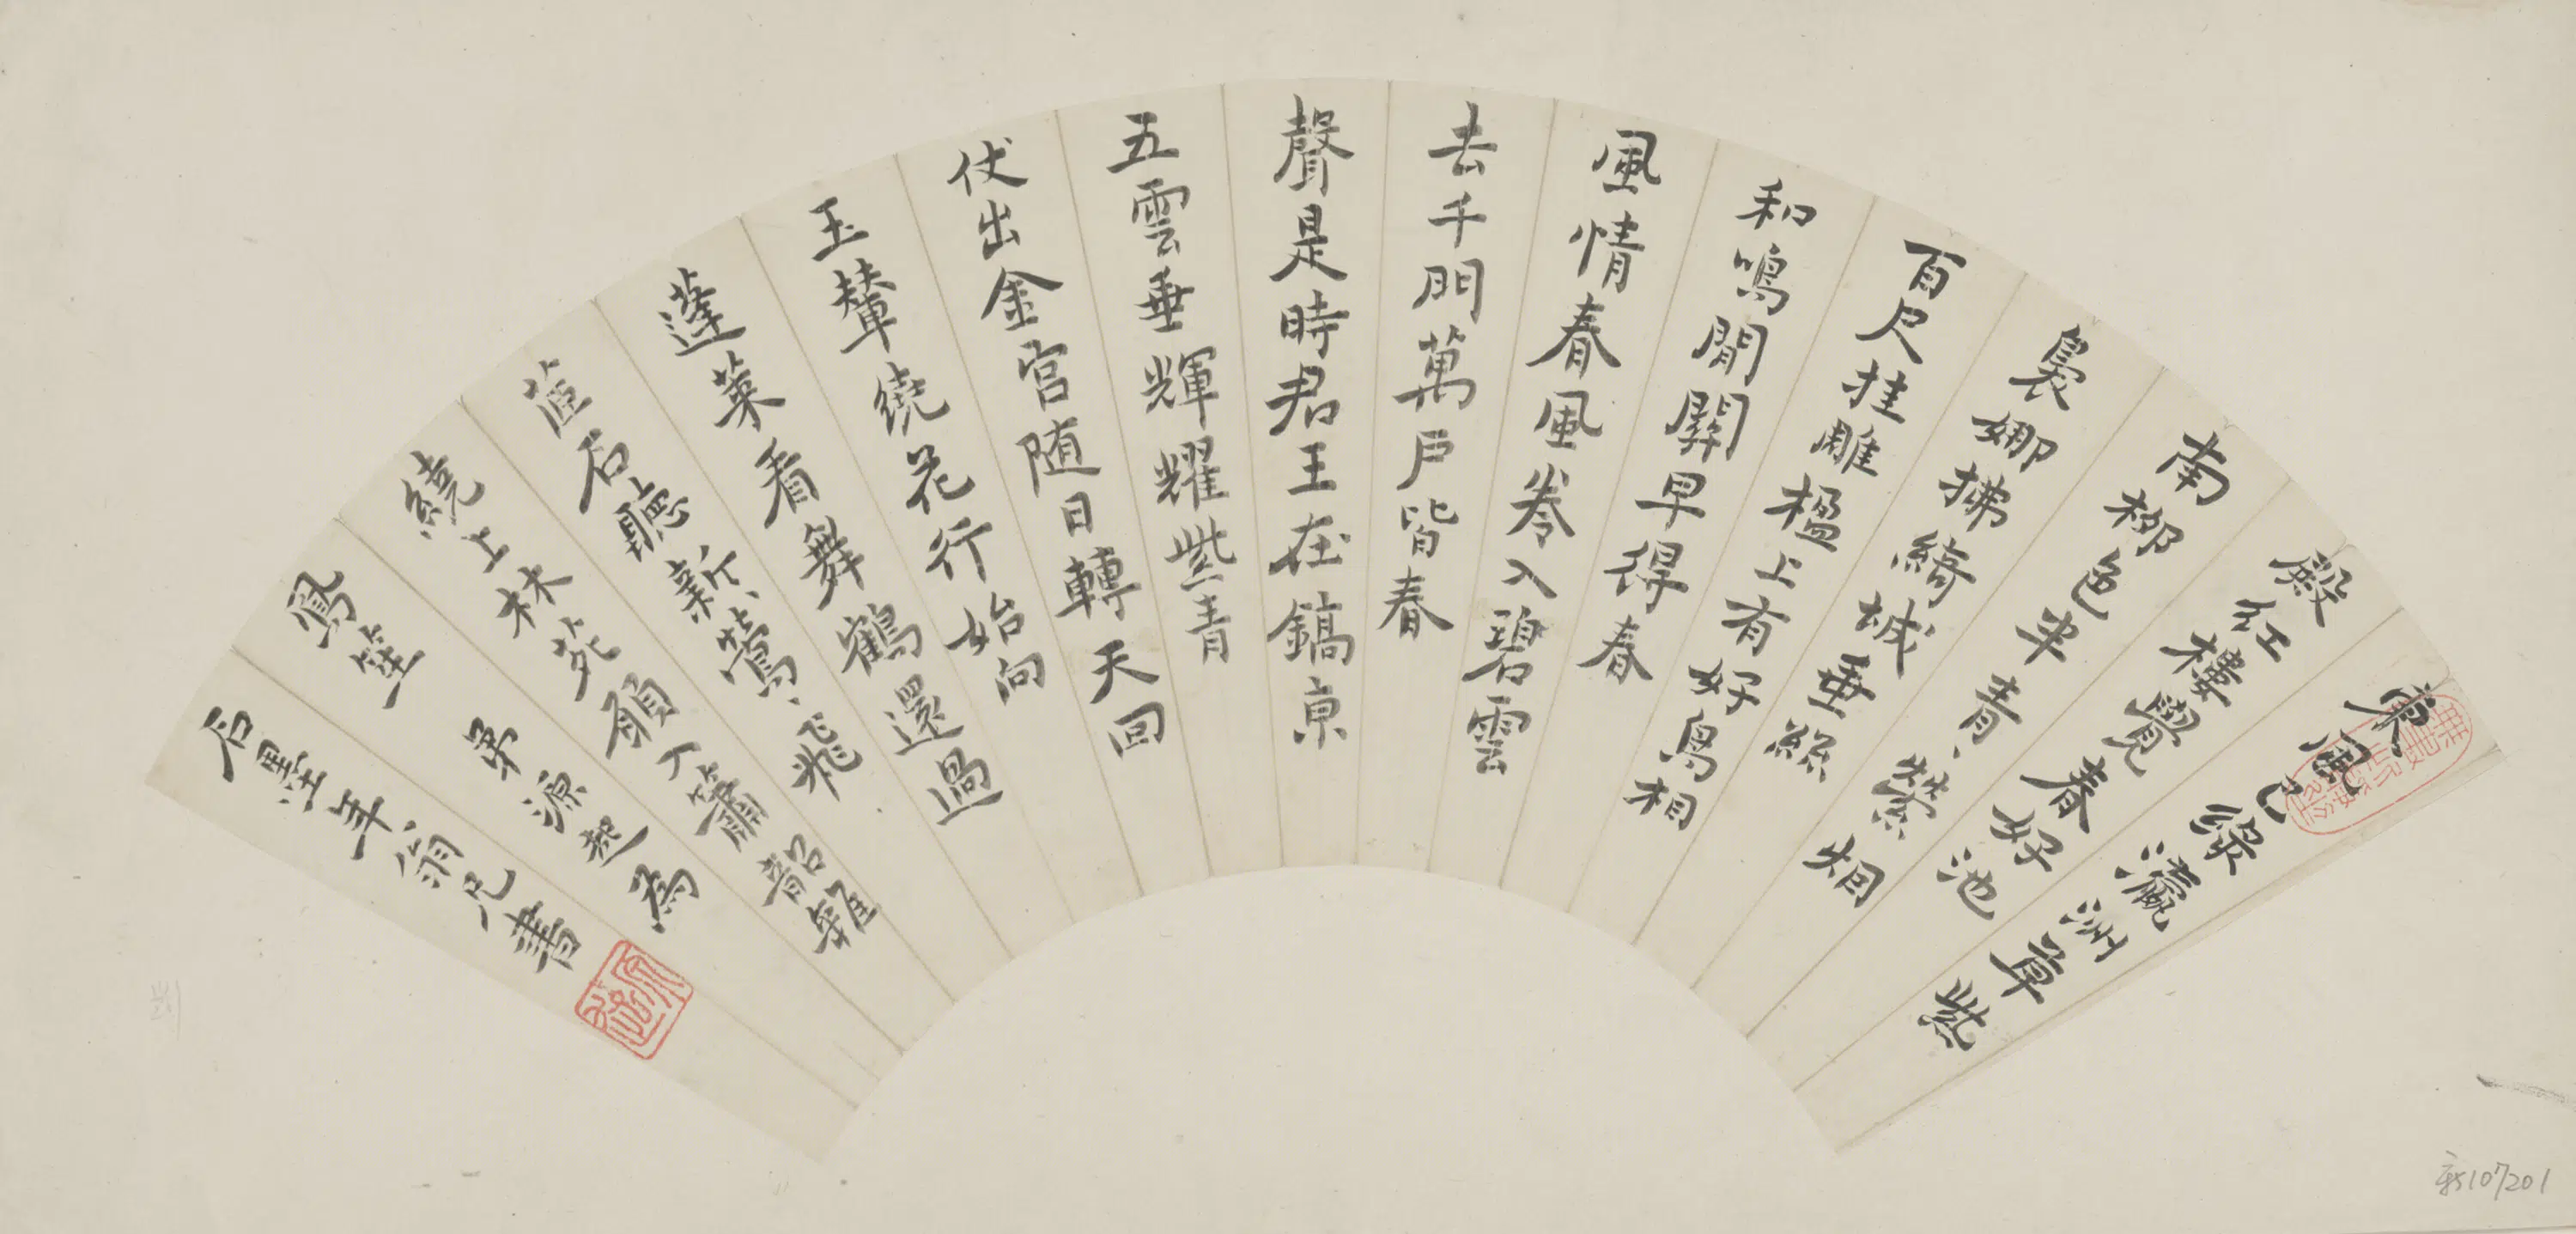 東風已綠瀛洲草紫
殿紅樓覺春好池
南柳色半青、縈烟
裊娜拂綺城垂絲
百尺挂雕楹上有好鳥相
和鳴間關早得春
風情春風卷入碧雲
去千門萬戶皆春
聲是時君王在鎬京
五雲垂輝耀紫青
仗出金宮随日轉天回
玉輦繞花行始向
蓬萊看舞鶴還過
茝石聽新、鶯、飛
繞上林苑願入簫韶雜
鳳笙 弟源起為
石墨年翁兄書
新107201